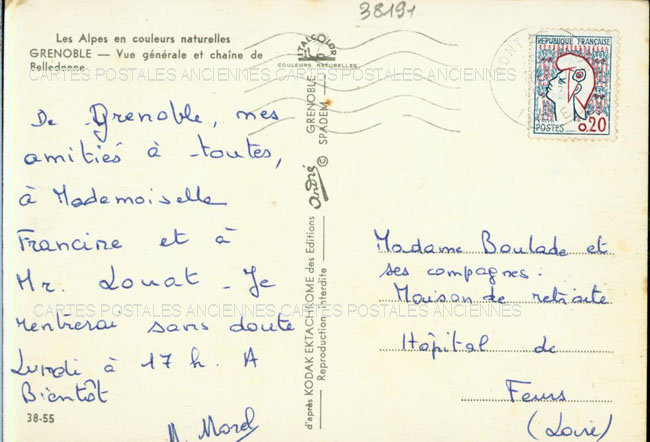 38191
Les Alpes en couleurs naturelles
GRENOBLE — Vue générale et chaîne de
Belledonne
CARTES POSTALES ANCIENNES CARTES POSTALES ANCIENNES CARTES POSTALES ANCIENNES
De Grenoble, mes
amitiés à toutes,
à Mademoiselle
Francine et à
Mr. Louat - Je
CARTES POSTALES ANCIENNES CARTES POSTALES ANCIENNES CARTES POSTALES ANCIENNES
rentrerai sans doute
Lundi à 17 h. A
Bientôt
M. Morel
38-55
ITALCOLOR
COULEURS NATURELLES
GRENOBLE
SPADEM
©
André
d'après KODAK EKTACHROME des Editions
Reproduction interdite
REPUBLIQUE FRANÇAISE
POSTES 0,20
Madame Boulade et
ses compagnes.
Maison de retraite
Hôpital de
Feurs
(Loire)